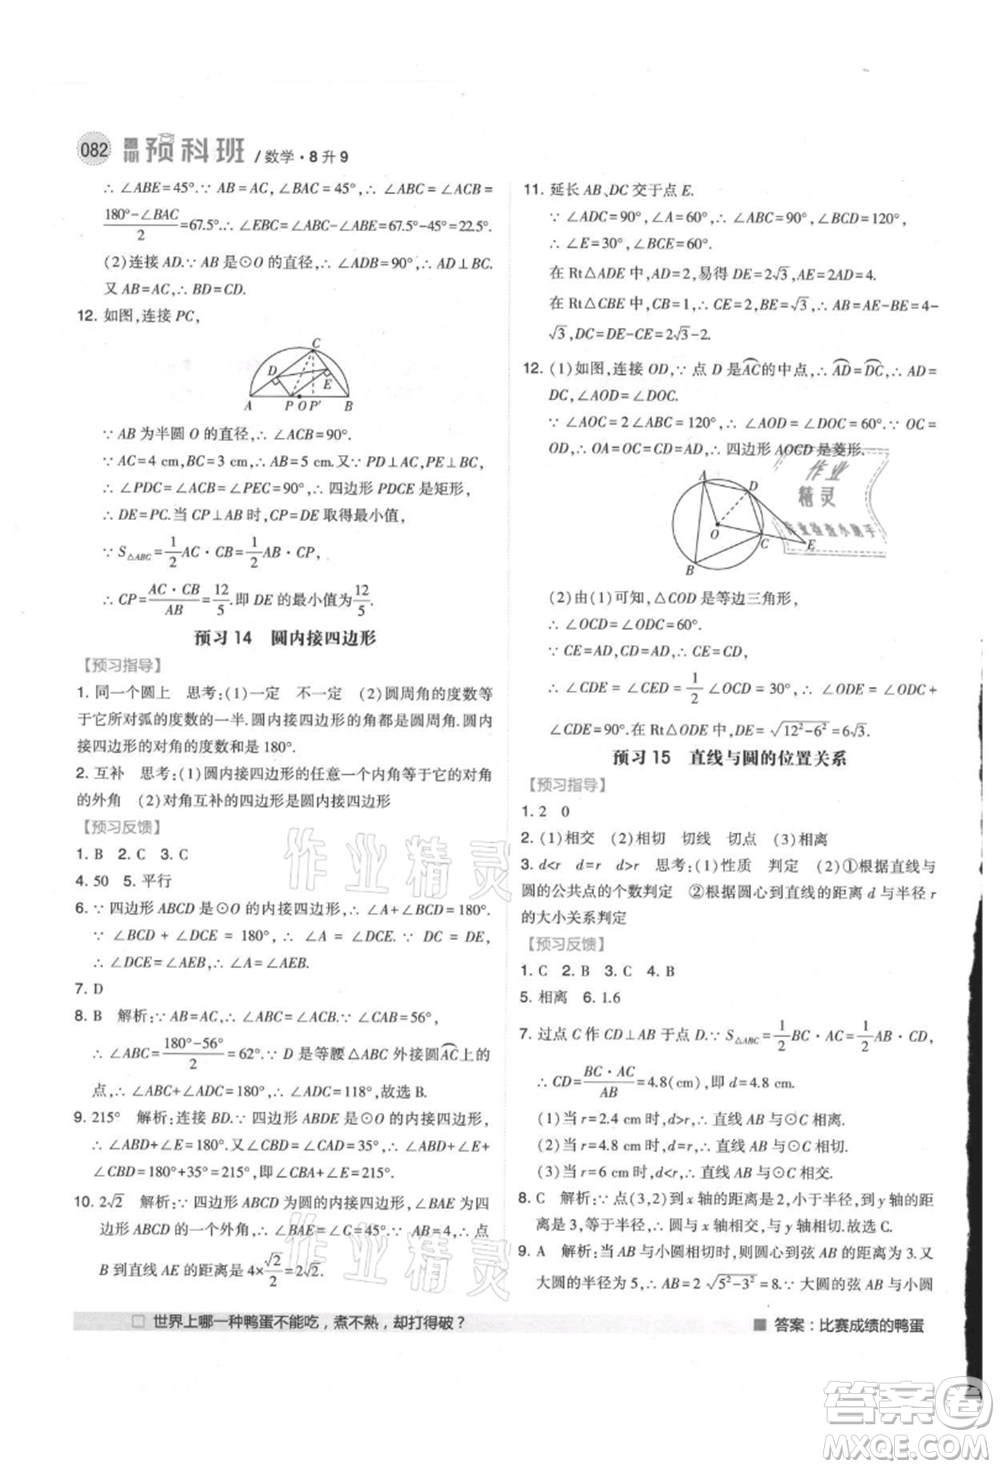 082 暑期预科班 /数学·8升9
∴ ∠ABE=45°.∵ AB=AC,∴ ∠EBC+∠ABE=∠C=
(180°-∠BAC)/2=67.5°.∴ ∠EBC=∠ABC-∠ABE=67.5°-45°=22.5°.
(2)连接 AD.∵ AB 是⊙O 的直径,∴ ∠ADB=90°,∴ AD⊥BC.
又 AB=AC,∴ BD=CD.
12. 如图,连接 PC,
C
D
E
A
P O P′ B
∵ AB 为半圆 O 的直径,∴ ∠ACB=90°.
∵ AC=4 cm,BC=3 cm,∴ AB=5 cm.又∵ PD⊥AC,PE⊥BC,
∴ ∠PDC=∠PEC=∠ACB=90°,∴ 四边形 PDCE 是矩形,
∴ DE=PC.当 CP⊥AB 时,CP 即 DE 取得最小值,
∵ S△ABC=1/2AC·CB=1/2AB·CP,
∴ CP=AC·CB/AB=12/5.即 DE 的最小值为12/5.
预习 14 圆内接四边形
【预习指导】
1. 同一个圆上 思考:(1)一定 不一定 (2)圆周角的度数等
于它所对弧的度数的一半.圆内接四边形的角都是圆周角.圆内
接四边形的对角的度数和是 180°.
2. 互补 思考:(1)圆内接四边形的任意一个内角等于它的对角
的外角 (2)对角互补的四边形是圆内接四边形
【预习反馈】
1. B 2. C 3. C
4. 50 5. 平行
6. ∵ 四边形 ABCD 是⊙O 的内接四边形,∴ ∠A+∠BCD=180°.
∵ ∠DCE+∠BCD=180°,∴ ∠A=∠DCE.∵ DC=DE,
∴ ∠DCE=∠AEB,∴ ∠A=∠AEB.
7. D
8. B 解析:∵ AB=AC,∴ ∠ABC=∠ACB.∵ ∠CAB=56°,
∴ ∠ACB=(180°-56°)/2=62°.∵ D 是等腰△ABC 外接圆AC⌒上一
点,∴ ∠ABC+∠ADC=180°,∴ ∠ADC=118°,故选 B.
9. 215° 解析:连接 BD.∵ 四边形 ABDE 是⊙O 的内接四边形,
∴ ∠ABD+∠E=180°.又∵ ∠CBD=∠CAD=35°,∴ ∠ABD+∠E+
∠CBD=180°+35°=215°,即∠CBA+∠E=215°.
10. 2√2 解析:∵ 四边形 ABCD 为圆的内接四边形,∠BAE 为四
边形 ABCD 的一个外角,∴ ∠BAE=∠C=45°.∵ AB=4,∴ 点
B 到直线 AE 的距离是 4×√2/2=2√2.
11. 延长 AB、DC 交于点 E.
∵ ∠ADC=90°,∠A=60°,∴ ∠ABC=90°,∠BCD=120°,
∴ ∠E=30°,∠BCE=60°.
在 Rt△ADE 中,AD=2,易得 DE=2√3,AE=4.
在 Rt△CBE 中,CB=1,∴ CE=2,BE=√3,∴ AB=AE-BE=4-
√3,DC=DE-CE=2√3-2.
12. (1)如图,连接 OD.∵ 点 D 是AC⌒的中点,∴ AD⌒=DC⌒,∴ AD=
DC,∴ ∠AOD=∠DOC.
∵ ∠AOC=2∠ABC=120°,∴ ∠AOD=∠DOC=60°.∵ OC=
OD=OA,∴ OA=OC=CD=AD,∴ 四边形 AOCD 是菱形.
A
D
O
C
E
B
(2)由(1)可知,△COD 是等边三角形,
∴ ∠OCD=∠CDO=60°.
∵ CE=OA=CD=6,∴ ∠CDE=∠CED.
∴ ∠CDE=∠CED=1/2∠OCD=30°,∴ ∠ODE=∠ODC+
∠CDE=90°.在 Rt△ODE 中,DE=√(12²-6²)=6√3.
预习 15 直线与圆的位置关系
【预习指导】
1. 2 0
2. (1)相交 (2)相切 切线 切点 (3)相离
3. d<r d=r d>r 思考:(1)性质 判定 (2)①根据直线与
圆的公共点的个数判定 ②根据圆心到直线的距离 d 与半径 r
的大小关系判定
【预习反馈】
1. C 2. B 3. C 4. B
5. 相离 6. 1.6
7. 过点 C 作 CD⊥AB 于点 D.∵ S△ABC=1/2BC·AC=1/2AB·CD,
∴ CD=BC·AC/AB=4.8(cm),即 d=4.8 cm.
(1)当 r=2.4 cm 时,d>r,∴ 直线 AB 与⊙C 相离.
(2)当 r=4.8 cm 时,d=r,∴ 直线 AB 与⊙C 相切.
(3)当 r=6 cm 时,d<r,∴ 直线 AB 与⊙C 相交.
8. C 解析:∵ 点(3,2)到 x 轴的距离是 2,小于半径,到 y 轴的
距离是 3,等于半径,∴ 圆与 x 轴相交,与 y 轴相切.故选 C.
9. A 解析:当 AB 与小圆相切时,∵ 大圆的半径为 5,小圆的半径为 3,∴ AB=2√(5²-3²)=8.∵ 大圆的弦 AB 与小圆
□ 世界上哪一种鸭蛋不能吃，煮不熟，却打得破？
■ 答案：比赛成绩的鸭蛋
作业精灵
作业精灵
作业
精灵
作业检查小助手
答案圈
MXQE.COM